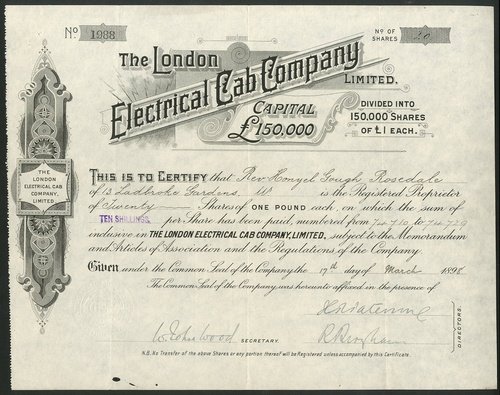 No. 1988
No OF SHARES 20
The London
Electrical Cab Company
LIMITED.
CAPITAL
£150,000
DIVIDED INTO
150,000 SHARES
OF £1 EACH.
THE
LONDON
ELECTRICAL CAB
COMPANY,
LIMITED
THIS IS TO CERTIFY that Rev. Gough Rosedale
of 13 Ladbroke Gardens W is the Registered Proprietor
of Twenty Shares of ONE POUND each, on which the sum of
TEN SHILLINGS, per Share has been paid, numbered from to
inclusive in THE LONDON ELECTRICAL CAB COMPANY, LIMITED, subject to the Memorandum
and Articles of Association and the Regulations of the Company.
Given under the Common Seal of the Company the 17th day of March 1898
The Common Seal of the Company was hereunto affixed in the presence of
W. John Wood SECRETARY.
DIRECTORS.
N.B. No Transfer of the above Shares or any portion thereof will be Registered unless accompanied by this Certificate.